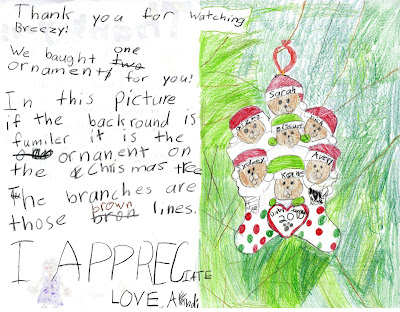 Thank you for watching
Breezy!
We baught one
ornament for you!
In this picture
if the backround is
fumiler it is the
ornanent on
the Chrismas tree
The branches are
those brown lines.
I APPRECIATE
LOVE,
Sarah
Biscuit
Avery
Katie
2010